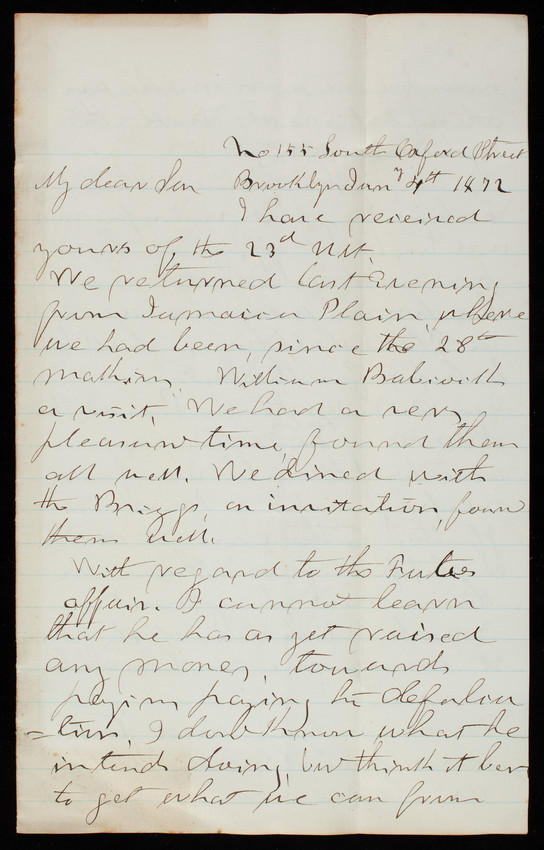 No 155 South Oxford Street
My dear Son Brooklyn Jany 4th 1872
I have received
yours of the 23d Ult.
We returned last Evening
from Jamaica Plain, where
we had been, since the 28th
making William Babcock
a visit, We had a very
pleasant time, found them
all well. We dined with
the Briggs, on invitation, found
them well.
With regard to the
affair. I cannot learn
that he has as yet raised
any money, towards
paying paying his defalca
=tion, I dont know what he
intends doing, but think it best
to get what we can from